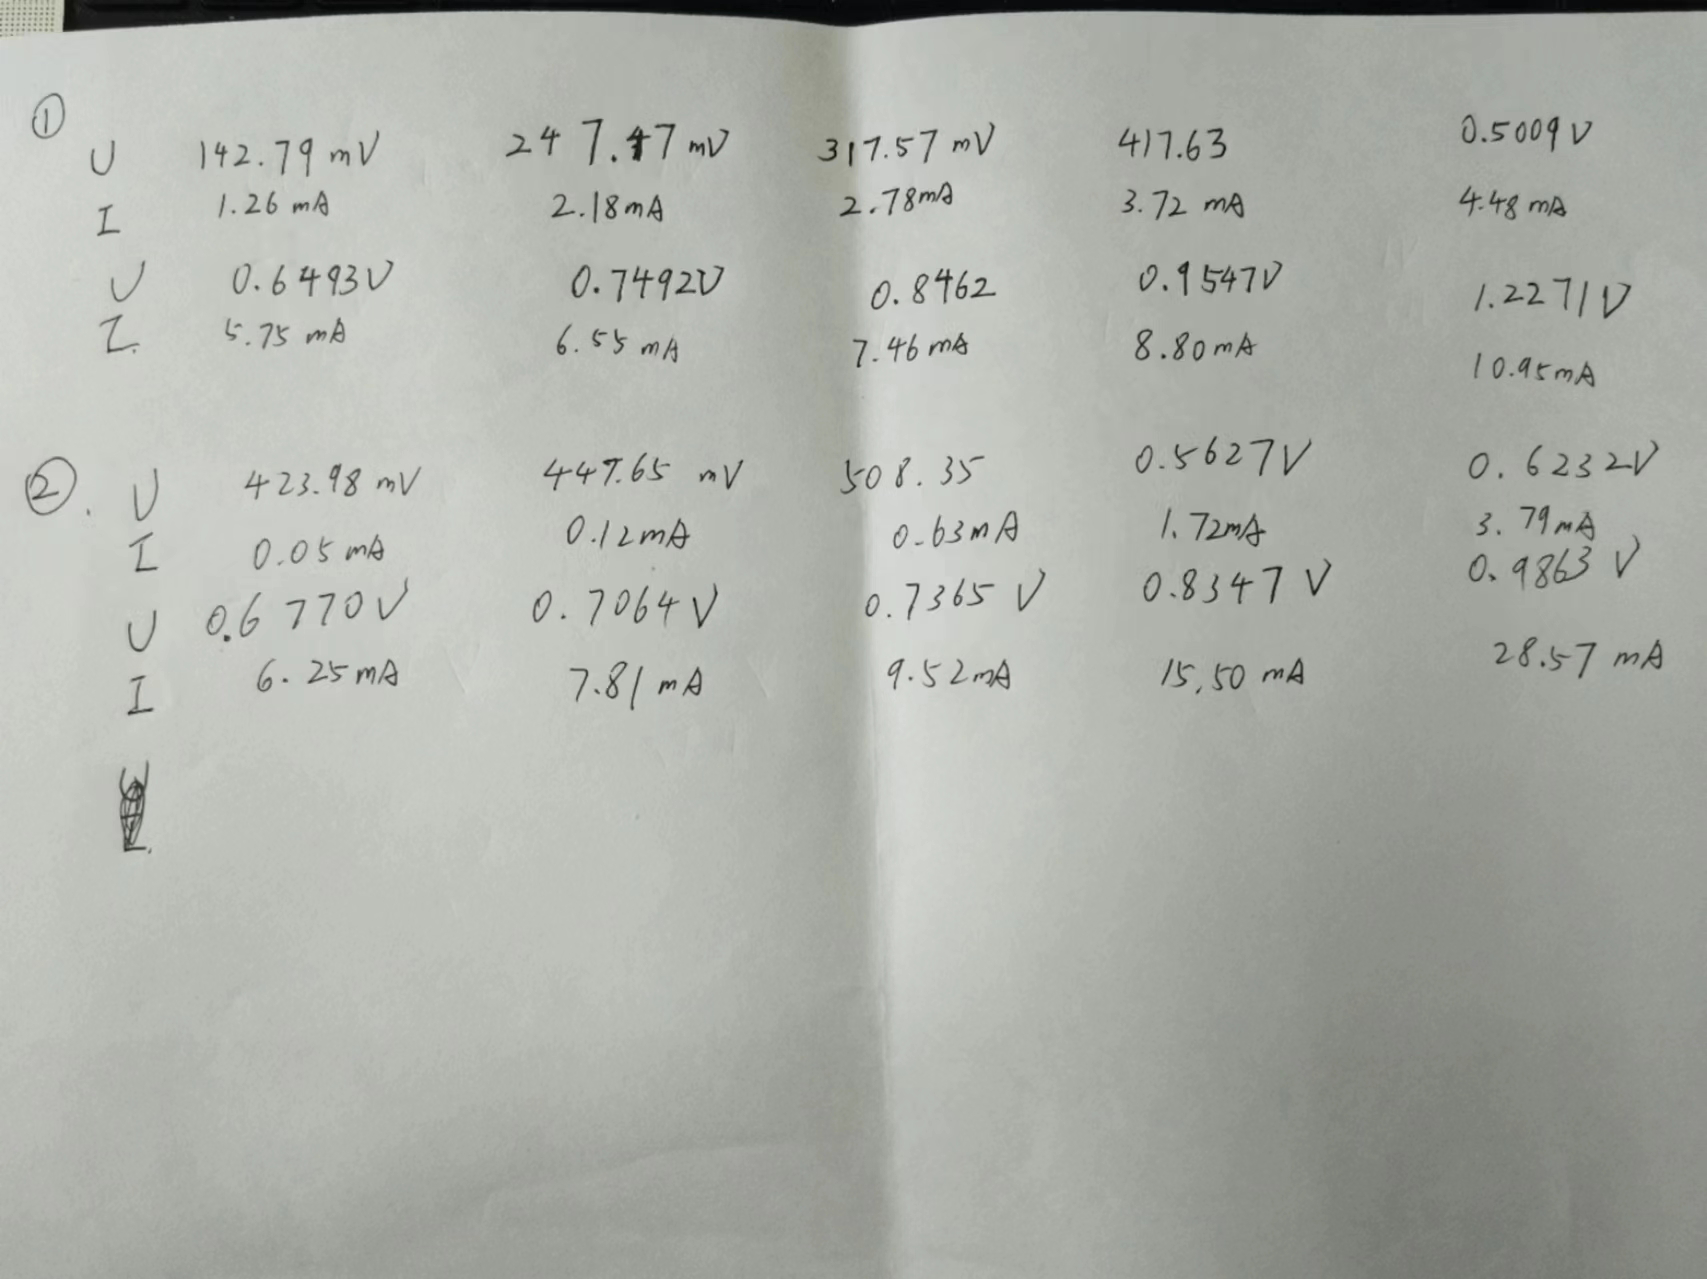 ①
U 142.79 mV 247.47 mV 317.57 mV 417.63 0.5009V
I 1.26 mA 2.18mA 2.78mA 3.72 mA 4.48 mA
U 0.6493V 0.7492V 0.8462 0.9547V 1.2271V
I. 5.75 mA 6.55 mA 7.46 mA 8.80mA 10.95mA
②. U 423.98 mV 447.65 mV 508.35 0.5627V 0.6232V
I 0.05 mA 0.12mA 0.63mA 1.72mA 3.79mA
U 0.6770V 0.7064V 0.7365 V 0.8347 V 0.9863 V
I 6.25mA 7.81mA 9.52mA 15.50 mA 28.57 mA